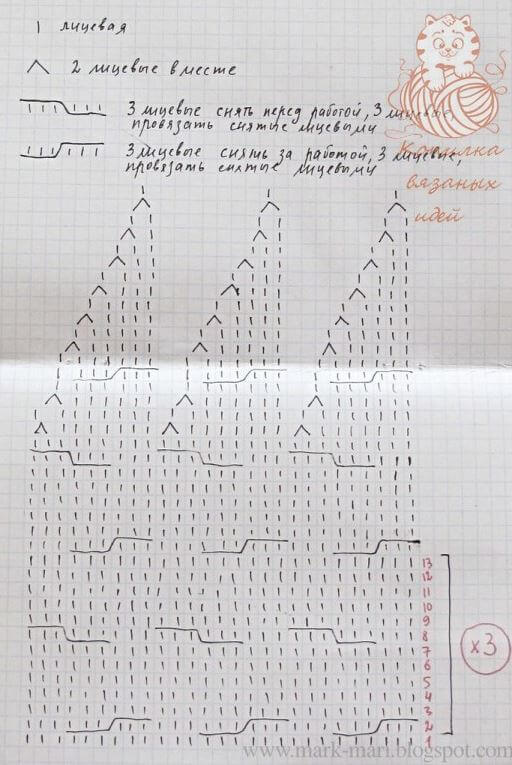 1 лицевая
2 лицевые вместе
3 лицевые снять перед работой, 3 лицевые,
провязать снятые лицевыми
3 лицевые снять за работой, 3 лицевые,
провязать снятые лицевыми
Копилка
вязаных
идей
13
12
11
10
9
8
7
6
5
4
3
2
1
x3
www.mark-mari.blogspot.com